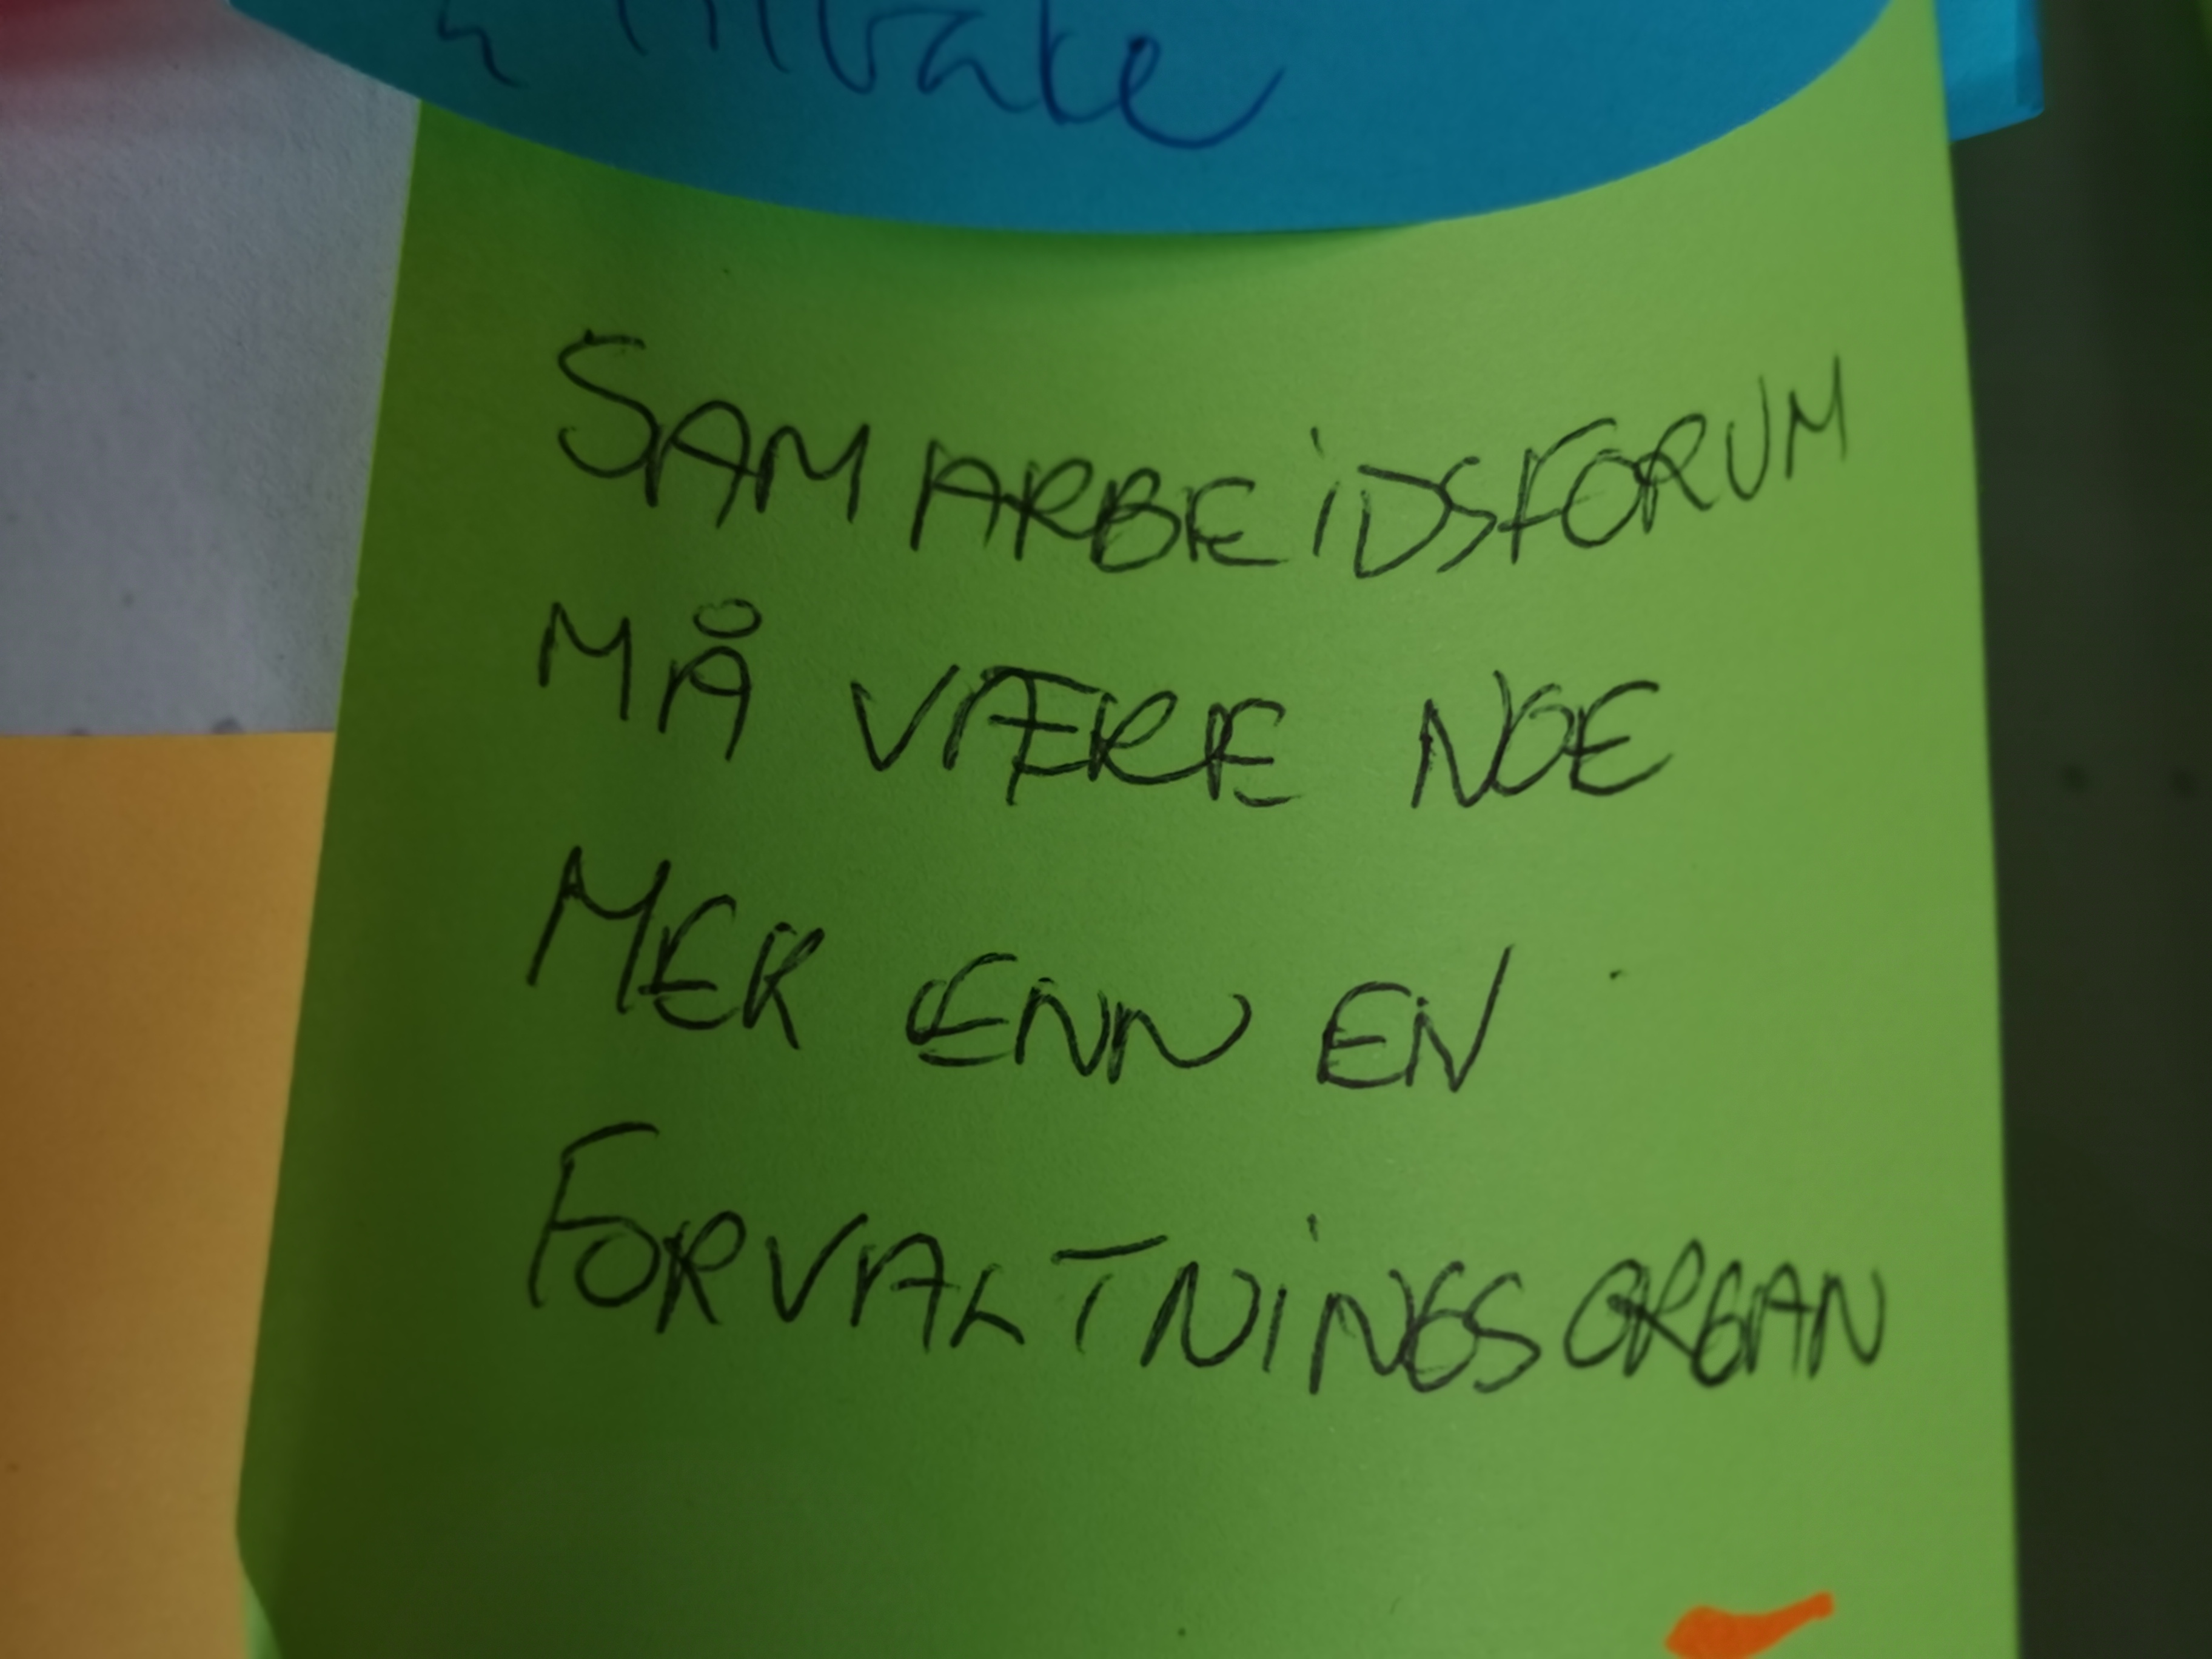 tilbake
SAMARBEIDSFORUM
MÅ VÆRE NOE
MER ENN EN
FORVALTNINGSORGAN